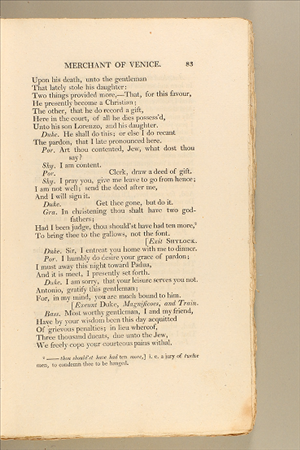 MERCHANT OF VENICE. 83
Upon his death, unto the gentleman
That lately stole his daughter:
Two things provided more,—That, for this favour,
He presently become a Christian;
The other, that he do record a gift,
Here in the court, of all he dies possess'd,
Unto his son Lorenzo, and his daughter.
Duke. He shall do this; or else I do recant
The pardon, that I late pronounced here.
Por. Art thou contented, Jew, what dost thou
say?
Shy. I am content.
Por. Clerk, draw a deed of gift.
Shy. I pray you, give me leave to go from hence;
I am not well; send the deed after me,
And I will sign it.
Duke. Get thee gone, but do it.
Gra. In christening thou shalt have two god-
fathers;
Had I been judge, thou should'st have had ten more,⁹
To bring thee to the gallows, not the font.
[Exit SHYLOCK.
Duke. Sir, I entreat you home with me to dinner.
Por. I humbly do desire your grace of pardon;
I must away this night toward Padua,
And it is meet, I presently set forth.
Duke. I am sorry, that your leisure serves you not.
Antonio, gratify this gentleman;
For, in my mind, you are much bound to him.
[Exeunt Duke, Magnificoes, and Train.
Bass. Most worthy gentleman, I and my friend,
Have by your wisdom been this day acquitted
Of grievous penalties; in lieu whereof,
Three thousand ducats, due unto the Jew,
We freely cope your courteous pains withal.
⁹ —— thou should'st have had ten more,] i. e. a jury of twelve
men, to condemn thee to be hanged.